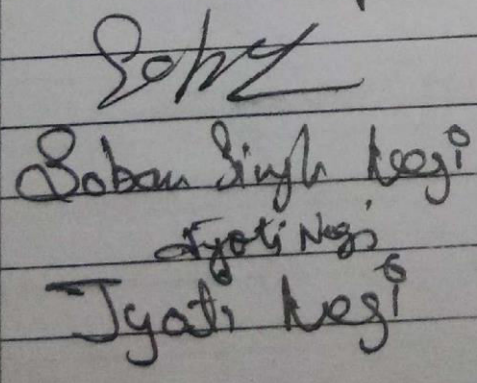 Soban Singh Negi
Jyoti Negi
Jyoti Negi